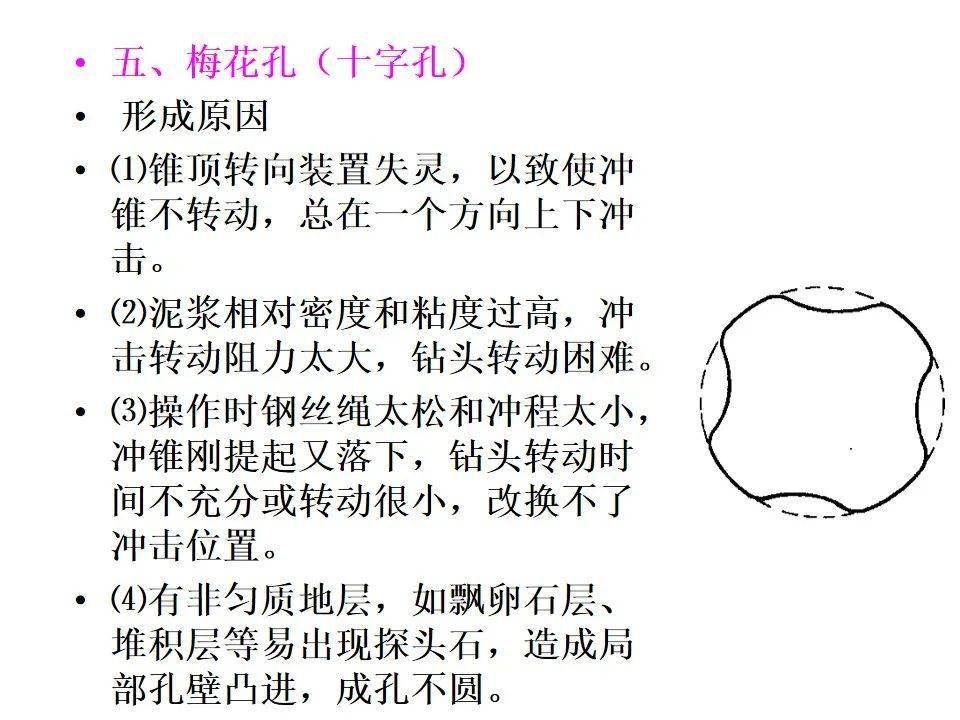 • 五、梅花孔（十字孔）
• 形成原因
• ⑴锥顶转向装置失灵，以致使冲
锥不转动，总在一个方向上下冲
击。
• ⑵泥浆相对密度和粘度过高，冲
击转动阻力太大，钻头转动困难。
• ⑶操作时钢丝绳太松和冲程太小，
冲锥刚提起又落下，钻头转动时
间不充分或转动很小，改换不了
冲击位置。
• ⑷有非匀质地层，如飘卵石层、
堆积层等易出现探头石，造成局
部孔壁凸进，成孔不圆。